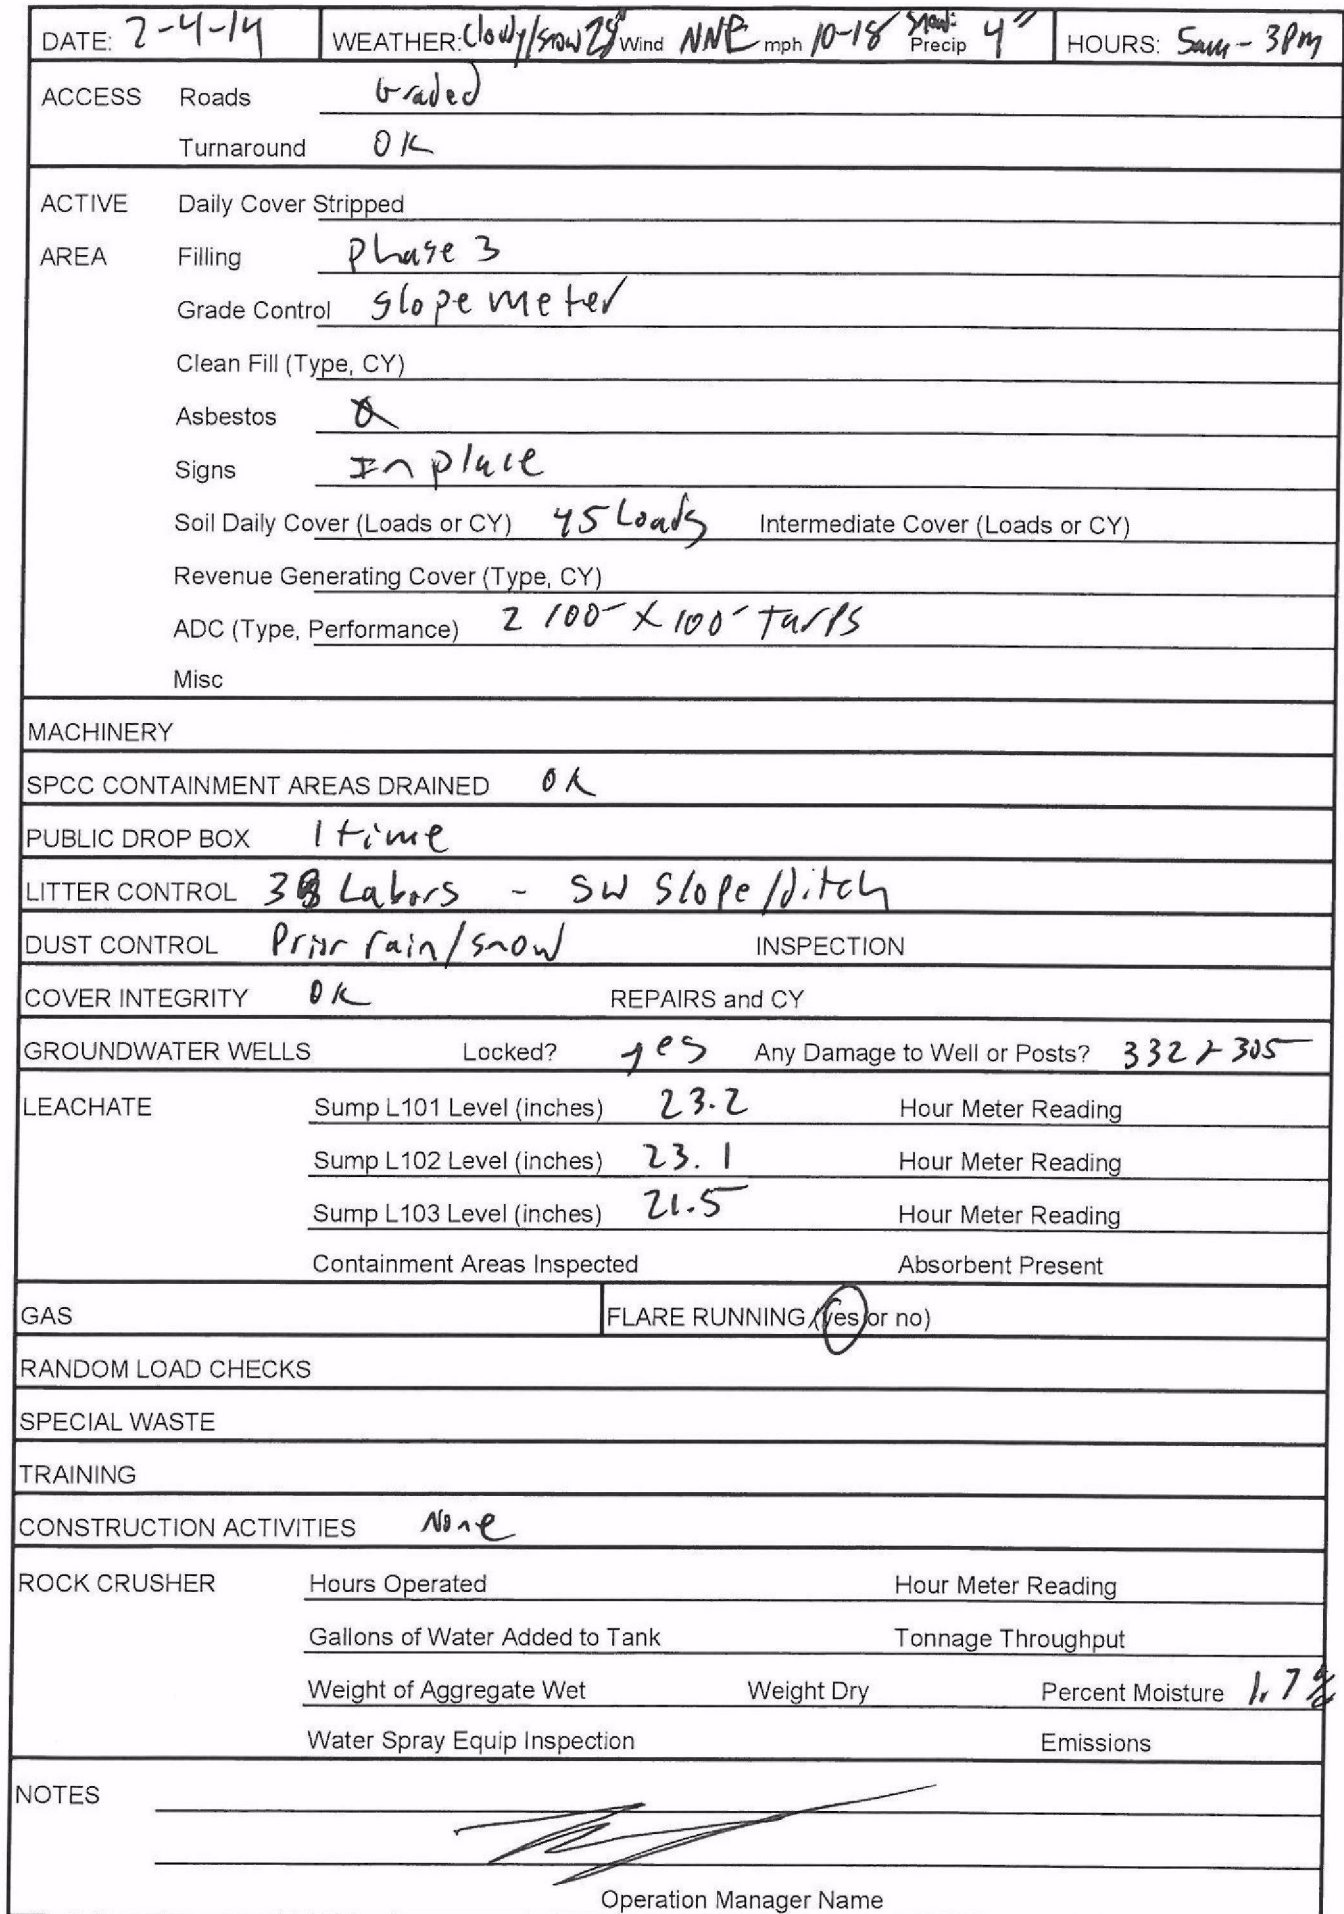 DATE: 2-4-14 WEATHER: Clowdy/snow 28° Wind NNE mph 10-18 snow: Precip 4" HOURS: 5am - 3PM
ACCESS Roads Graded
Turnaround OK
ACTIVE Daily Cover Stripped
AREA Filling Phase 3
Grade Control slope meter
Clean Fill (Type, CY)
Asbestos
Signs In place
Soil Daily Cover (Loads or CY) 45 Loads Intermediate Cover (Loads or CY)
Revenue Generating Cover (Type, CY)
ADC (Type, Performance) 2 100' X 100' Tarps
Misc
MACHINERY
SPCC CONTAINMENT AREAS DRAINED OK
PUBLIC DROP BOX 1 time
LITTER CONTROL 3 Labors - SW Slope/Ditch
DUST CONTROL Prior rain/snow INSPECTION
COVER INTEGRITY OK REPAIRS and CY
GROUNDWATER WELLS Locked? yes Any Damage to Well or Posts? 332 + 305
LEACHATE Sump L101 Level (inches) 23.2 Hour Meter Reading
Sump L102 Level (inches) 23.1 Hour Meter Reading
Sump L103 Level (inches) 21.5 Hour Meter Reading
Containment Areas Inspected Absorbent Present
GAS FLARE RUNNING (yes or no)
RANDOM LOAD CHECKS
SPECIAL WASTE
TRAINING
CONSTRUCTION ACTIVITIES None
ROCK CRUSHER Hours Operated Hour Meter Reading
Gallons of Water Added to Tank Tonnage Throughput
Weight of Aggregate Wet Weight Dry Percent Moisture 1.7%
Water Spray Equip Inspection Emissions
NOTES
Operation Manager Name